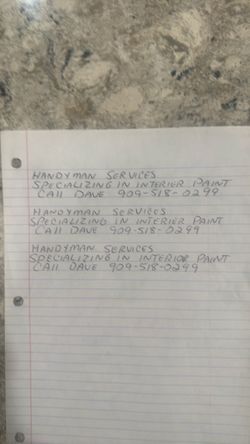 HANDYMAN SERVICES
SPECIALIZING IN INTERIER PAINT
CAll DAVE 909-518-0299
HANDYMAN SERVICES
SPECIALIZING IN INTERIER PAINT
CAll DAVE 909-518-0299
HANDYMAN SERVICES
SPECIALIZING IN INTERIOR PAINT
CAll DAVE 909-518-0299